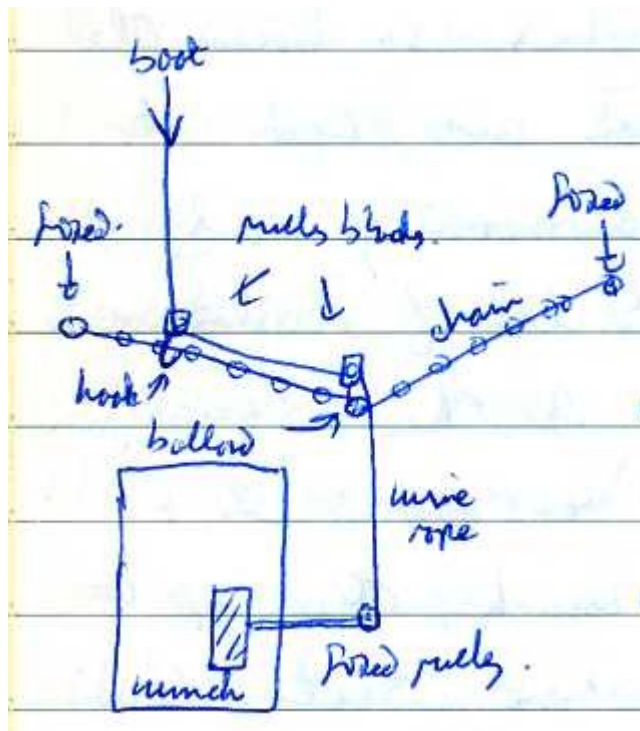 boat
fixed.
pulley blocks.
fixed
chain
hook
bollard
wire
rope
winch
fixed pulley.